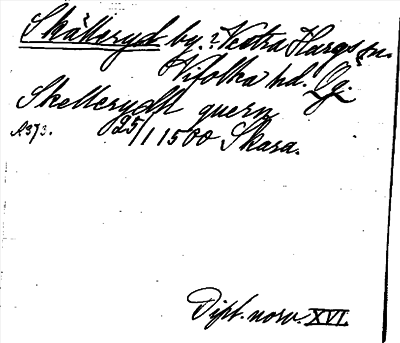 Skälleryd by. ? Vestra Hargs sn.
Vifolka hd. Ög.
Skellerydh quern
N 373. 25/1 1500 Skara.
Dipl. norv. XVI.